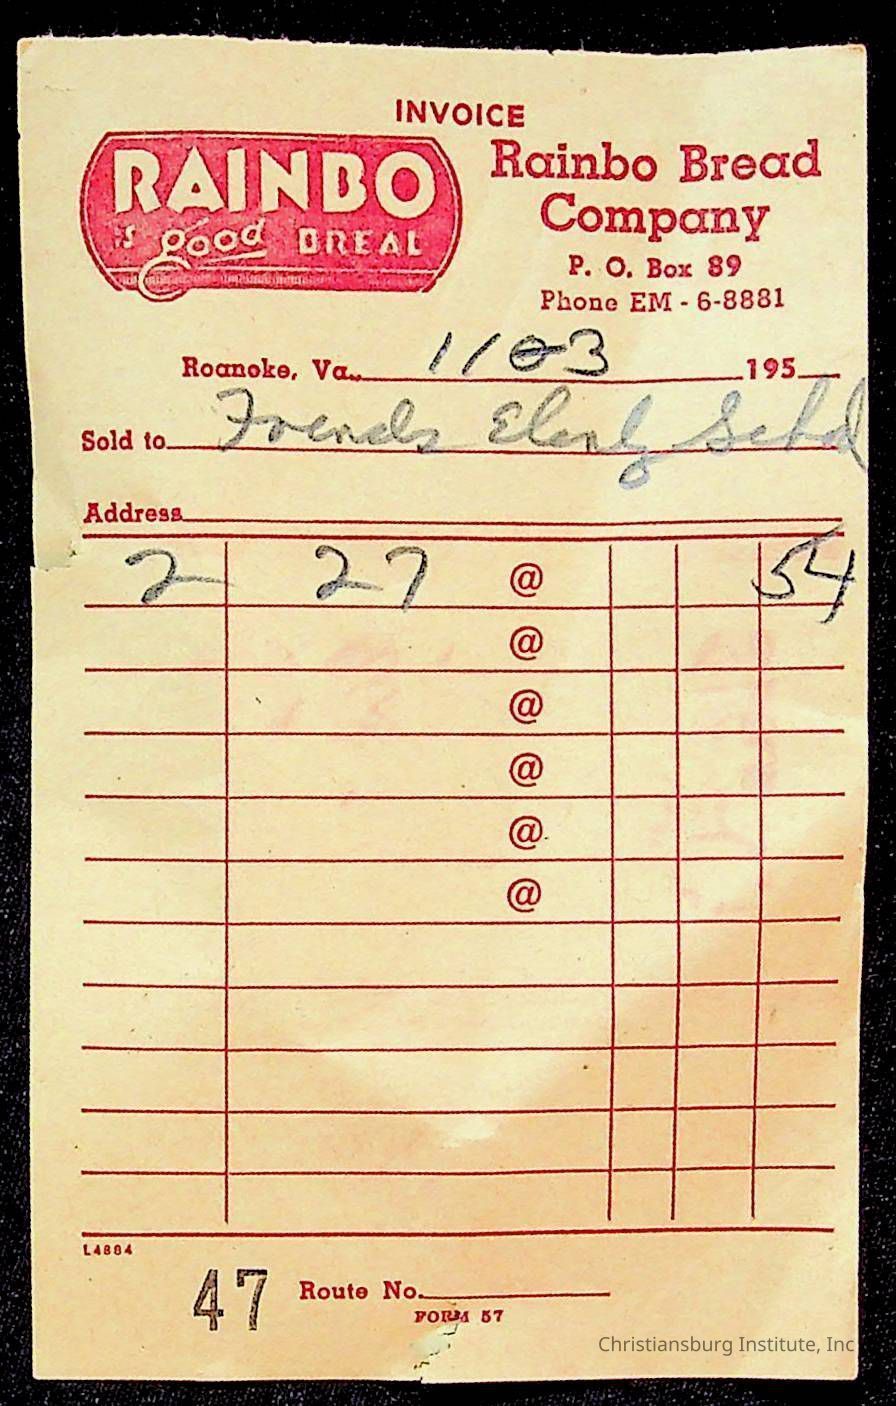 INVOICE
RAINBO
is good BREAD
Rainbo Bread
Company
P. O. Box 89
Phone EM - 6-8881
Roanoke, Va. 11 03 195
Sold to Friends
Address
2 27 @ 54
@
@
@
@
@
L4884
47 Route No.
FORM 57
Christiansburg Institute, Inc